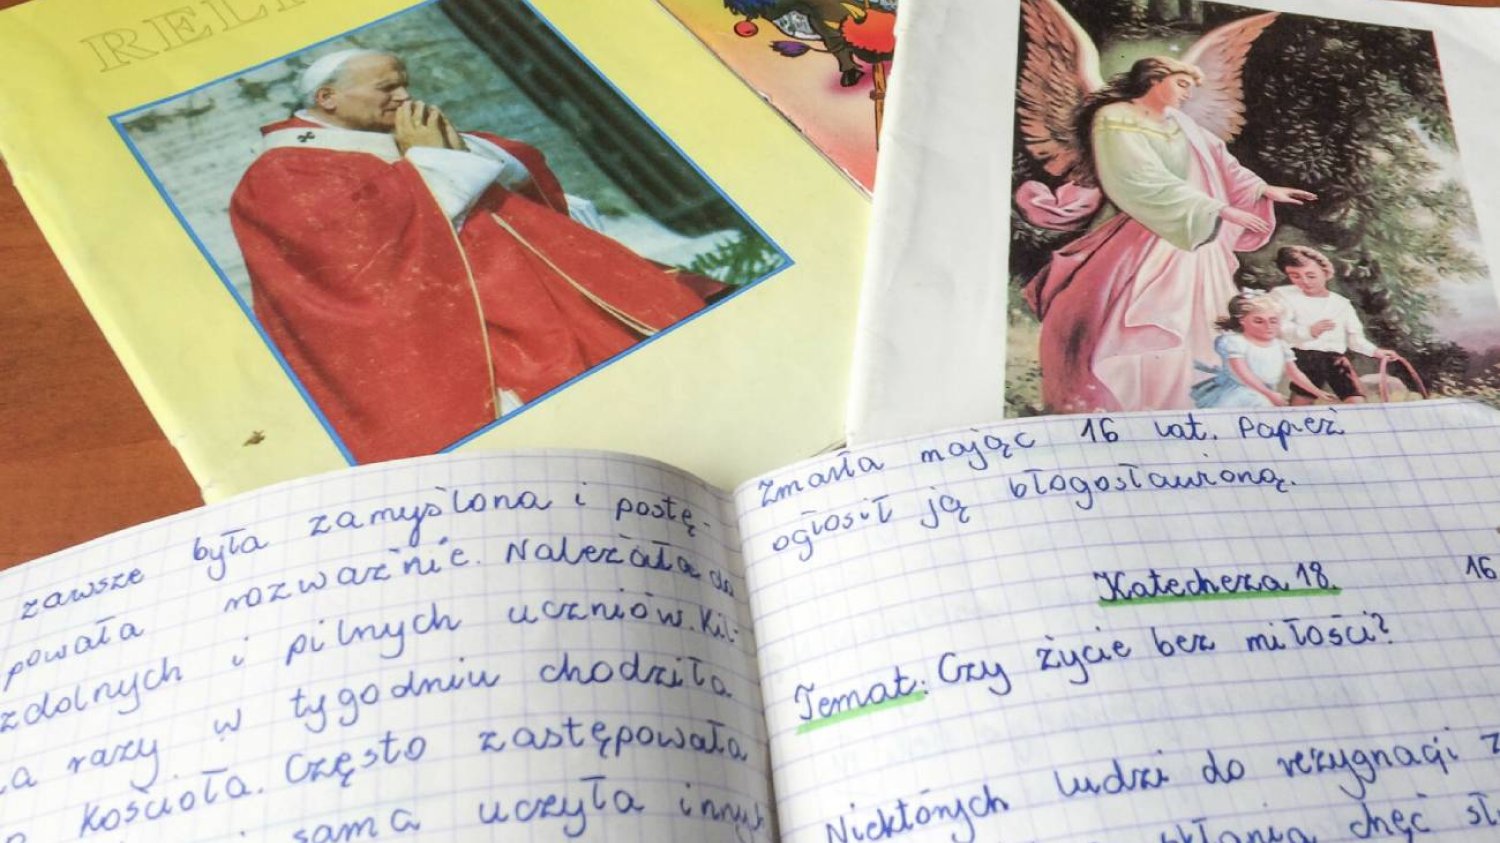 RELI
zawsze była zamyślona i postę-
powała rozważnie. Należała do
zdolnych i pilnych uczniów. Kil-
a razy w tygodniu chodziła
kościoła. Często zastępowała
sama uczyła innych
Zmarła mając 16 lat. Papież
ogłosił ją błogosławioną.
Katecheza 18. 16
Temat: Czy życie bez miłości?
Niektórych ludzi do rezygnacji z
chęć